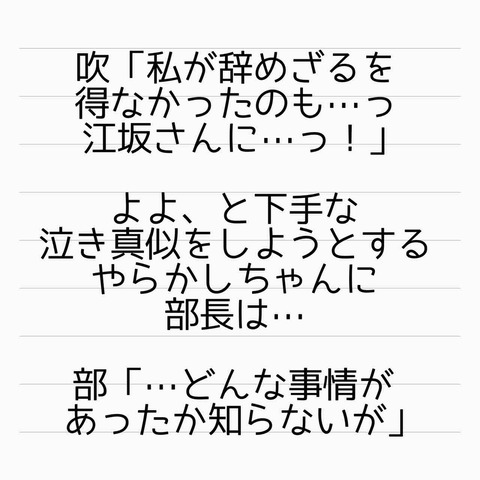 吹「私が辞めざるを
得なかったのも…っ
江坂さんに…っ！」
よよ、と下手な
泣き真似をしようとする
やらかしちゃんに
部長は…
部「…どんな事情が
あったか知らないが」